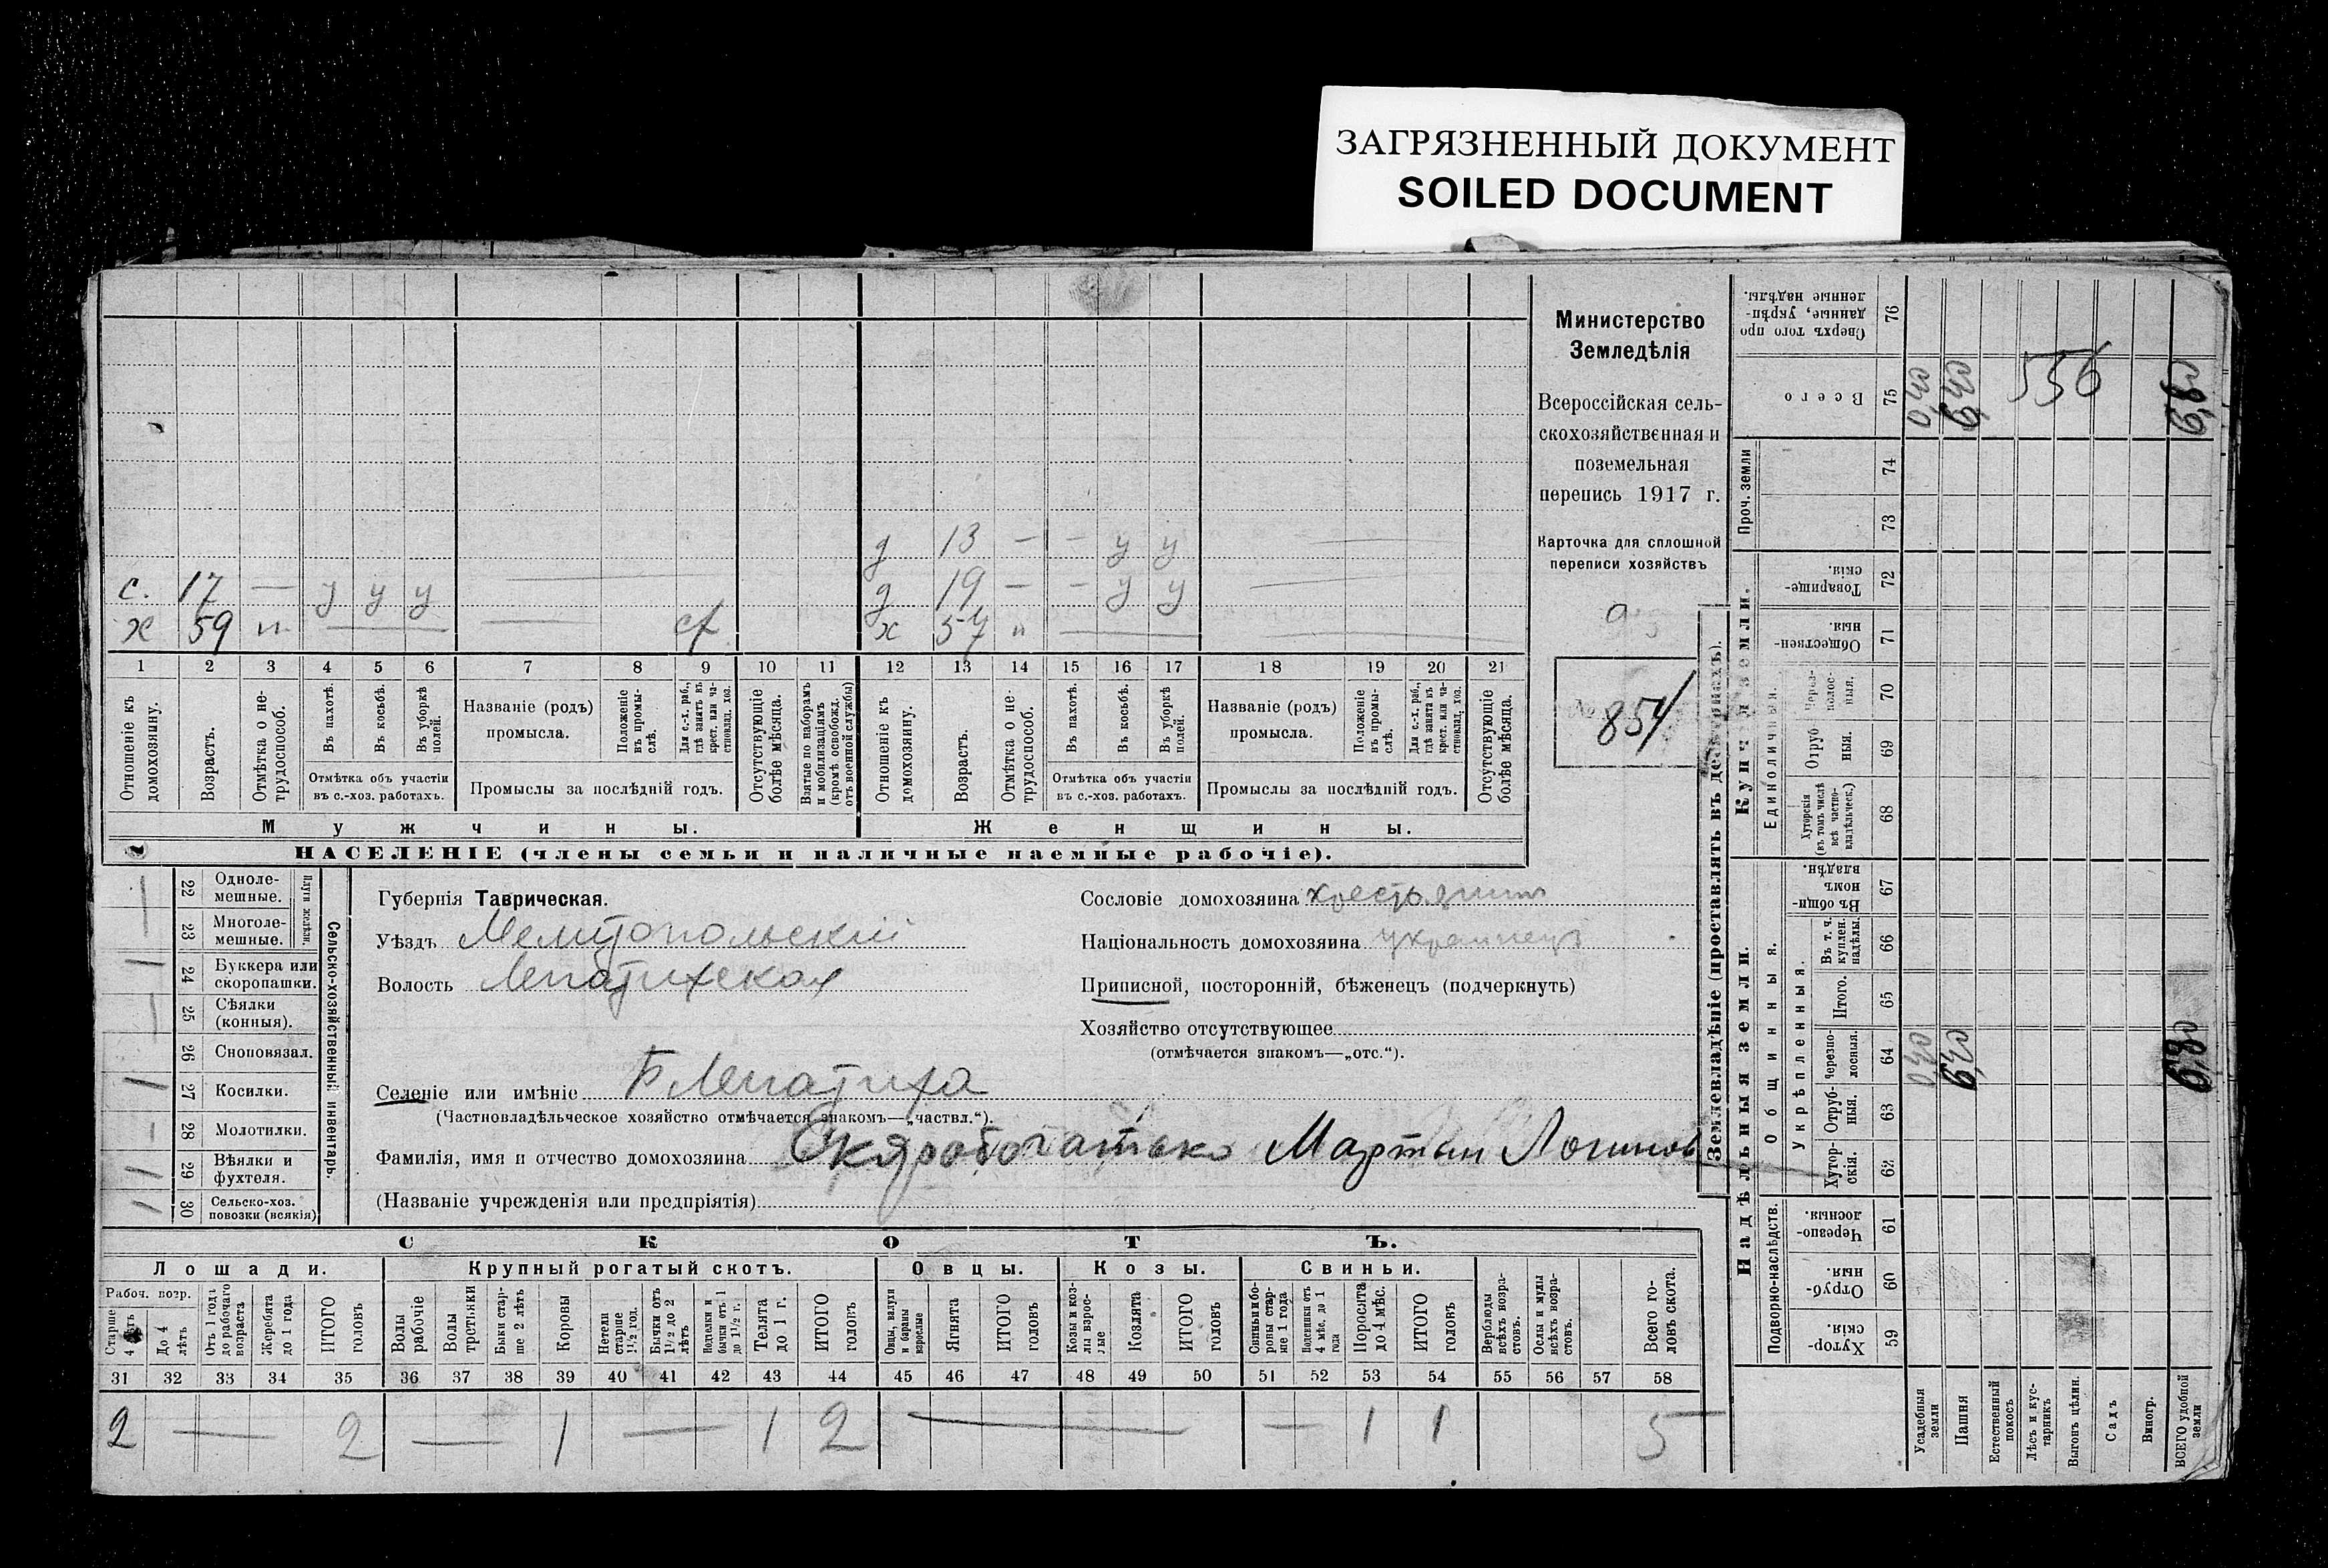 ЗАГРЯЗНЕННЫЙ ДОКУМЕНТ
SOILED DOCUMENT
Министерство
Земледѣлія
Всероссійская сель-
скохозяйственная и
поземельная
перепись 1917 г.
Карточка для сплошной
переписи хозяйствъ
854
д 13 — — у у
с. 17 — у у у
д 19 — — у у
х 59 п
х 57 п
1 2 3 4 5 6 7 8 9 10 11 12 13 14 15 16 17 18 19 20 21
Отношеніе къ домохозяину.
Возрастъ.
Отмѣтка о не-трудоспособ.
Въ пахотѣ.
Въ косьбѣ.
Въ уборкѣ полей.
Отмѣтка объ участіи
въ с.-хоз. работахъ.
Названіе (родъ)
промысла.
Положеніе въ промы-слѣ.
Для с.-х. раб., гдѣ занятъ въ крест. или ча-стновлад. хоз.
Промыслы за послѣдній годъ.
Отсутствующіе болѣе мѣсяца.
Взятые по наборамъ и мобилизаціямъ (кромѣ освобожд. отъ военной службы)
Отношеніе къ домохозяину.
Возрастъ.
Отмѣтка о не-трудоспособ.
Въ пахотѣ.
Въ косьбѣ.
Въ уборкѣ полей.
Отмѣтка объ участіи
въ с.-хоз. работахъ.
Названіе (родъ)
промысла.
Положеніе въ промы-слѣ.
Для с.-х. раб., гдѣ занята въ крест. или ча-стновлад. хоз.
Промыслы за послѣдній годъ.
Отсутствующіе болѣе мѣсяца.
Мужчины.
Женщины.
НАСЕЛЕНІЕ (члены семьи и наличные наемные рабочіе).
Сельско-хозяйственный инвентарь.
Плуги желѣзн.
22 Одноле-мешные.
— 23 Многоле-мешные.
1 24 Буккера или скоропашки.
— 25 Сѣялки (конныя).
26 Сноповязал.
1 27 Косилки.
— 28 Молотилки.
1 29 Вѣялки и фухтеля.
30 Сельско-хоз. повозки (всякія)
Губернія Таврическая.
Уѣздъ Мелитопольскій
Волость Лепатихская
Селеніе или имѣніе Б Лепатиха
(Частновладѣльческое хозяйство отмѣчается знакомъ—„частвл.“).
Фамилія, имя и отчество домохозяина Мартын Логинов
(Названіе учрежденія или предпріятія)
Сословіе домохозяина крестьянин
Національность домохозяина украинецъ
Приписной, посторонній, бѣженецъ (подчеркнуть)
Хозяйство отсутствующее
(отмѣчается знакомъ—„отс.“).
СКОТЪ.
Лошади. Крупный рогатый скотъ. Овцы. Козы. Свиньи.
Рабоч. возр.
Старше 4 лѣтъ
До 4 лѣтъ
Отъ 1 года до рабочаго возраста
Жеребята до 1 года
ИТОГО головъ
Волы рабочіе
Волы третьяки
Быки стар-ше 2 лѣтъ
Коровы
Нетели старше 1½ год.
Бычки отъ 1½ до 2 лѣтъ
Телята до 1 г.
ИТОГО головъ
Овцы, валухи и бараны взрослые
Ягнята
ИТОГО головъ
Козы и коз-лы взрос-лые
Козлята
ИТОГО головъ
Свиньи и бо-ровы стар-ше 1 года
Подсвинки отъ 4 мѣс. до 1 года
Поросята до 4 мѣс.
ИТОГО головъ
Верблюды всѣхъ возра-стовъ.
Ослы и мулы всѣхъ возра-стовъ.
Всего го-ловъ скота.
31 32 33 34 35 36 37 38 39 40 41 42 43 44 45 46 47 48 49 50 51 52 53 54 55 56 57 58
2 — 2 — 1 — 1 2 — — 1 1 5
Землевладѣніе (проставлять въ десятинахъ).
Купчія земли.
Надѣльныя земли.
Сверхъ того про данные, укрѣп-ленные надѣлы. 76
Всего 75
Проч. земли 74 73
Товарище-скія. 72
Обществен-ныя 71
Единоличныя.
Через-полос-ныя. 70
Отруб-ныя. 69
Хуторскія (въ томъ числѣ всѣ частно-владѣльческ.) 68
Въ общи-номъ владѣн. 67
Общинныя.
Укрѣпленныя.
Въ т. ч. куплен. надѣлы. 66
Итого. 65
Черезпо-лосныя. 64
Отруб-ныя. 63
Хутор-скія. 62
Подворно-наслѣдств.
Черезпо-лосныя. 61
Отруб-ныя. 60
Хутор-скія. 59
Усадебныя земли
Пашня
Естественный покосъ
Лѣсъ и кус-тарникъ
Выгонъ цѣлин.
Садъ
Виногр.
ВСЕГО удобной земли
556